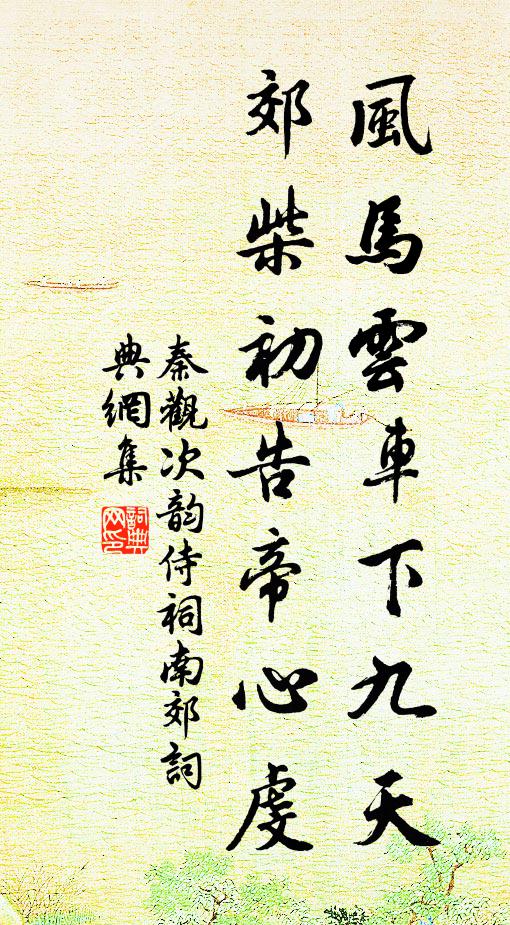 風馬雲車下九天
郊柴初告帝心虔
秦觀次韵侍祠南郊詞
典網集
詞典
网印